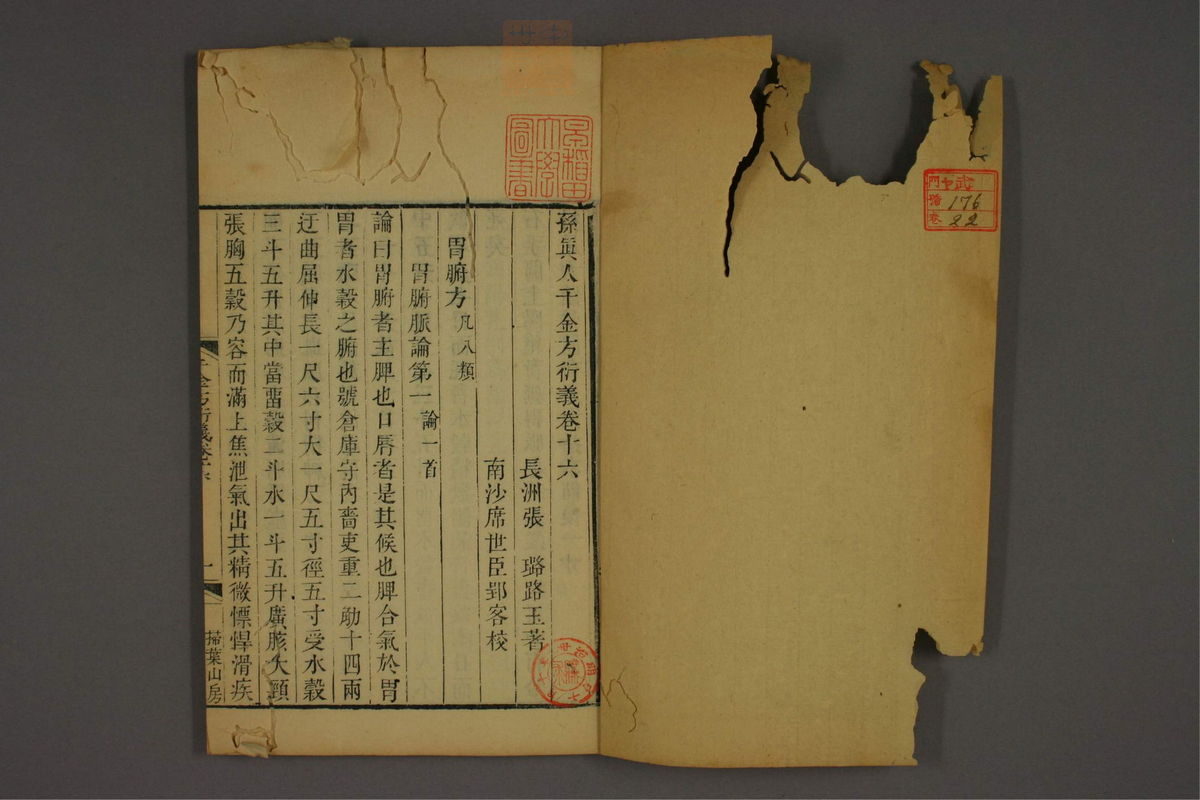 孫眞人千金方衍義卷十六
長洲張　璐路玉著
南沙席世臣郢客校
胃腑方凡八類
胃腑脈論第一論一首
論曰胃腑者主脾也口唇者是其候也脾合氣於胃
胃者水穀之腑也號倉庫守內嗇吏重二觔十四兩
迂曲屈伸長一尺六寸大一尺五寸徑五寸受水穀
三斗五升其中當畱穀二斗水一斗五升廣胲大頸
張胸五穀乃容而滿上焦泄氣出其精微慓悍滑疾
千金方衍義卷十六
一
掃葉山房
早稻田
大學
圖書
176
22